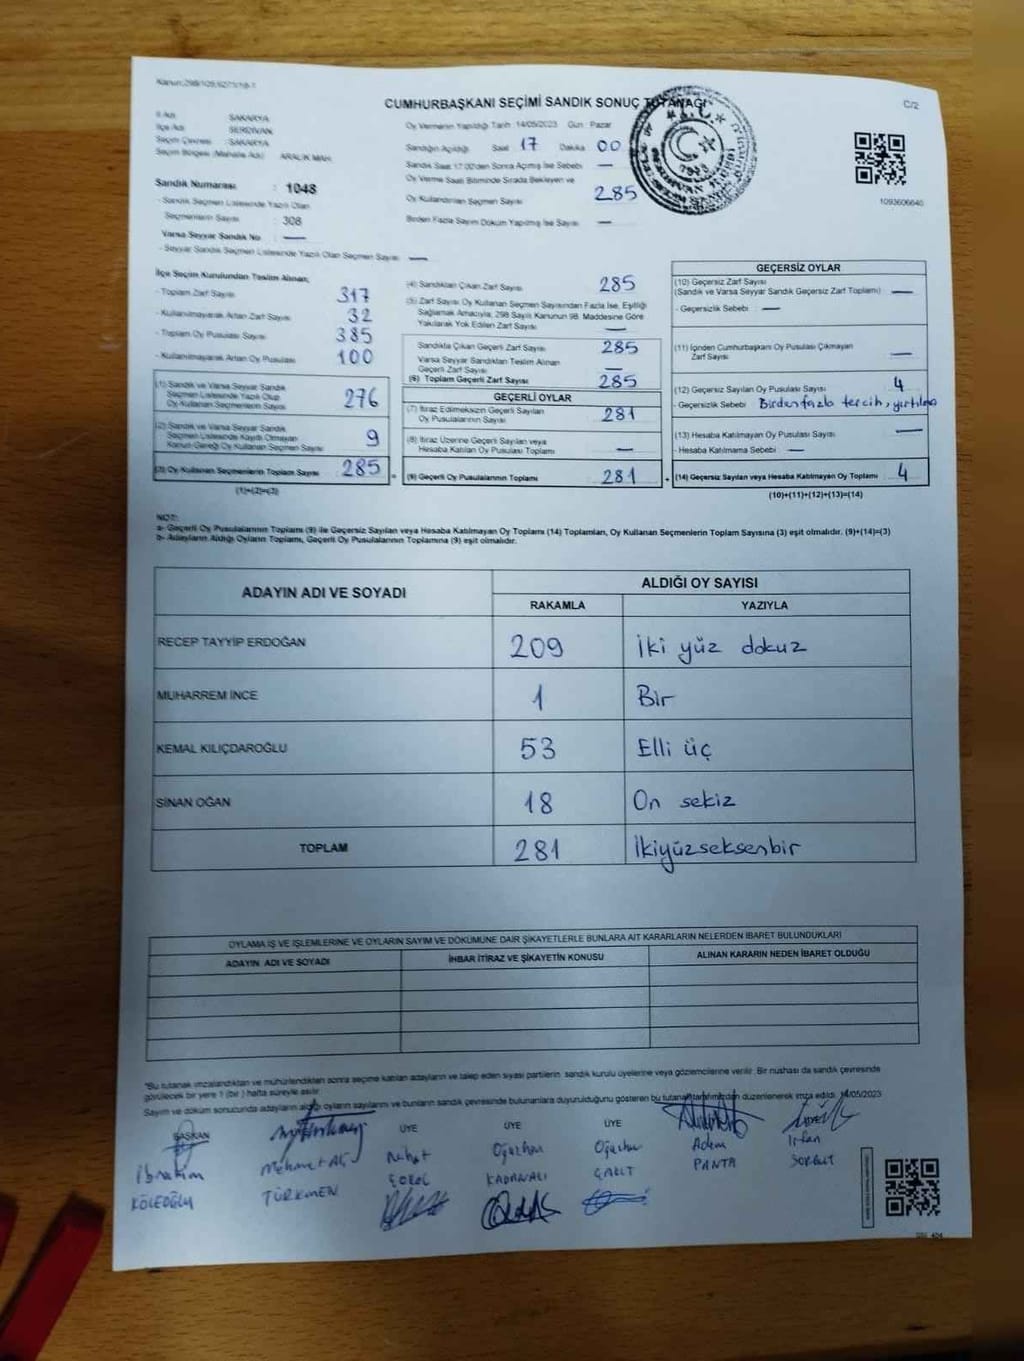 Kanun:298/105,6271/18-1
CUMHURBAŞKANI SEÇİMİ SANDIK SONUÇ TUTANAĞI
C/2
İl Adı SAKARYA
İlçe Adı SERDİVAN
Seçim Çevresi SAKARYA
Seçim Bölgesi (Mahalle Adı) ARALIK MAH.
Sandık Numarası : 1048
- Sandık Seçmen Listesinde Yazılı Olan
Seçmenlerin Sayısı : 308
Varsa Seyyar Sandık No : —
- Seyyar Sandık Seçmen Listesinde Yazılı Olan Seçmen Sayısı —
Oy Vermenin Yapıldığı Tarih :14/05/2023 Gün : Pazar
Sandığın Açıldığı Saat 17 Dakika 00
Sandık Saat 17:00'den Sonra Açılmış İse Sebebi —
Oy Verme Saati Bitiminde Sırada Bekleyen ve
Oy Kullandırılan Seçmen Sayısı 285
Birden Fazla Sayım Döküm Yapılmış İse Sayısı —
1093606640
İlçe Seçim Kurulundan Teslim Alınan;
- Toplam Zarf Sayısı 317
- Kullanılmayarak Artan Zarf Sayısı 32
- Toplam Oy Pusulası Sayısı 385
- Kullanılmayarak Artan Oy Pusulası 100
(1) Sandık ve Varsa Seyyar Sandık
Seçmen Listesinde Yazılı Olup
Oy Kullanan Seçmenlerin Sayısı 276
(2) Sandık ve Varsa Seyyar Sandık
Seçmen Listesinde Kayıtlı Olmayan
Kanun Gereği Oy Kullanan Seçmen Sayısı 9
(3) Oy Kullanan Seçmenlerin Toplam Sayısı 285
(1)+(2)=(3)
(4) Sandıktan Çıkan Zarf Sayısı 285
(5) Zarf Sayısı Oy Kullanan Seçmen Sayısından Fazla İse, Eşitliği
Sağlamak Amacıyla, 298 Sayılı Kanunun 98. Maddesine Göre
Yakılarak Yok Edilen Zarf Sayısı —
Sandıkta Çıkan Geçerli Zarf Sayısı 285
Varsa Seyyar Sandıktan Teslim Alınan
Geçerli Zarf Sayısı —
(6) Toplam Geçerli Zarf Sayısı 285
GEÇERLİ OYLAR
(7) İtiraz Edilmeksizin Geçerli Sayılan
Oy Pusulalarının Sayısı 281
(8) İtiraz Üzerine Geçerli Sayılan veya
Hesaba Katılan Oy Pusulası Toplamı —
(9) Geçerli Oy Pusulalarının Toplamı 281
GEÇERSİZ OYLAR
(10) Geçersiz Zarf Sayısı
(Sandık ve Varsa Seyyar Sandık Geçersiz Zarf Toplamı) —
- Geçersizlik Sebebi —
(11) İçinden Cumhurbaşkanı Oy Pusulası Çıkmayan
Zarf Sayısı —
(12) Geçersiz Sayılan Oy Pusulası Sayısı 4
- Geçersizlik Sebebi Birden fazla tercih, yırtılma
(13) Hesaba Katılmayan Oy Pusulası Sayısı —
- Hesaba Katılmama Sebebi —
(14) Geçersiz Sayılan veya Hesaba Katılmayan Oy Toplamı 4
(10)+(11)+(12)+(13)=(14)
NOT:
a- Geçerli Oy Pusulalarının Toplamı (9) ile Geçersiz Sayılan veya Hesaba Katılmayan Oy Toplamı (14) Toplamları, Oy Kullanan Seçmenlerin Toplam Sayısına (3) eşit olmalıdır. (9)+(14)=(3)
b- Adayların Aldığı Oyların Toplamı, Geçerli Oy Pusulalarının Toplamına (9) eşit olmalıdır.
ADAYIN ADI VE SOYADI ALDIĞI OY SAYISI
RAKAMLA YAZIYLA
RECEP TAYYİP ERDOĞAN 209 İki yüz dokuz
MUHARREM İNCE 1 Bir
KEMAL KILIÇDAROĞLU 53 Elli üç
SİNAN OĞAN 18 On sekiz
TOPLAM 281 İkiyüzseksenbir
OYLAMA İŞ VE İŞLEMLERİNE VE OYLARIN SAYIM VE DÖKÜMÜNE DAİR ŞİKAYETLERLE BUNLARA AİT KARARLARIN NELERDEN İBARET BULUNDUKLARI
ADAYIN ADI VE SOYADI İHBAR İTİRAZ VE ŞİKAYETİN KONUSU ALINAN KARARIN NEDEN İBARET OLDUĞU
"Bu tutanak imzalandıktan ve mühürlendikten sonra seçime katılan adayların ve talep eden siyasi partilerin sandık kurulu üyelerine veya gözlemcilerine verilir. Bir nüshası da sandık çevresinde
görülecek bir yere 1 (bir) hafta süreyle asılır.
Sayım ve döküm sonucunda adayların aldığı oyların sayılarını ve bunların sandık çevresinde bulunanlara duyurulduğunu gösteren bu tutanak tarafımızdan düzenlenerek imza edildi. 14/05/2023
BAŞKAN ÜYE ÜYE ÜYE
İbrahim Mehmet Ali Nihat Oğuzhan Oğuzhan Adem İrfan
KÖLEOĞLU TÜRKMEN PANTA